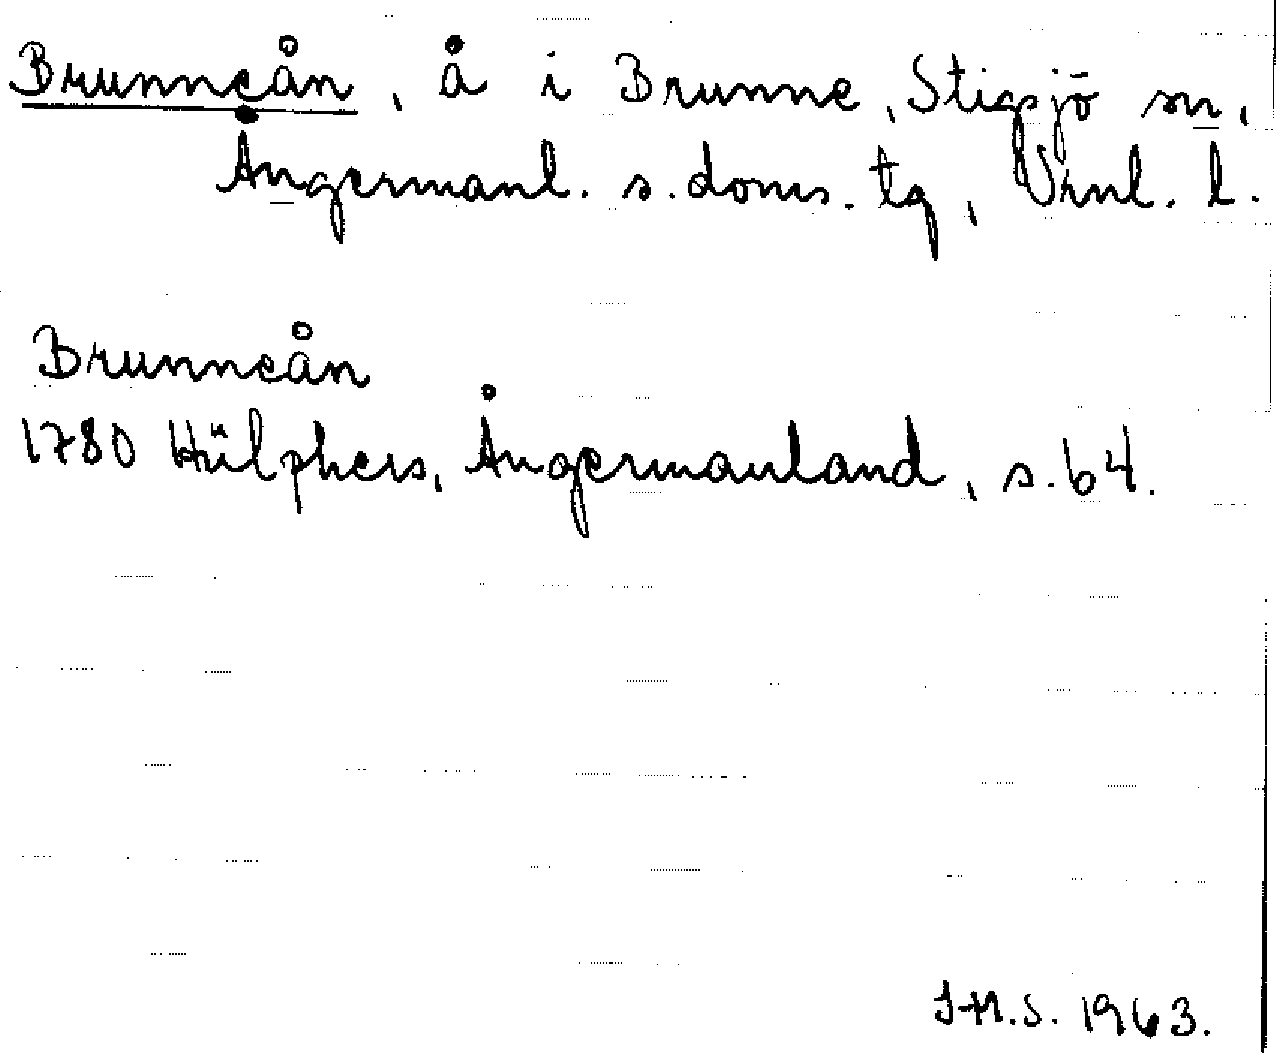 Brunneån, å i Brunne, Stigsjö sn,
Ångermanl. s. doms. tg, Vrnl. l.
Brunneån
1780 Hülphers, Ångermanland, s. 64.
J-H.S. 1963.